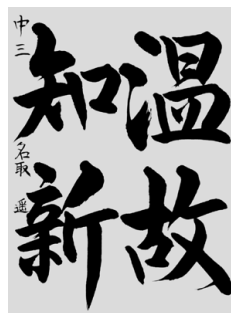 温故
知新
中三 名取 遥